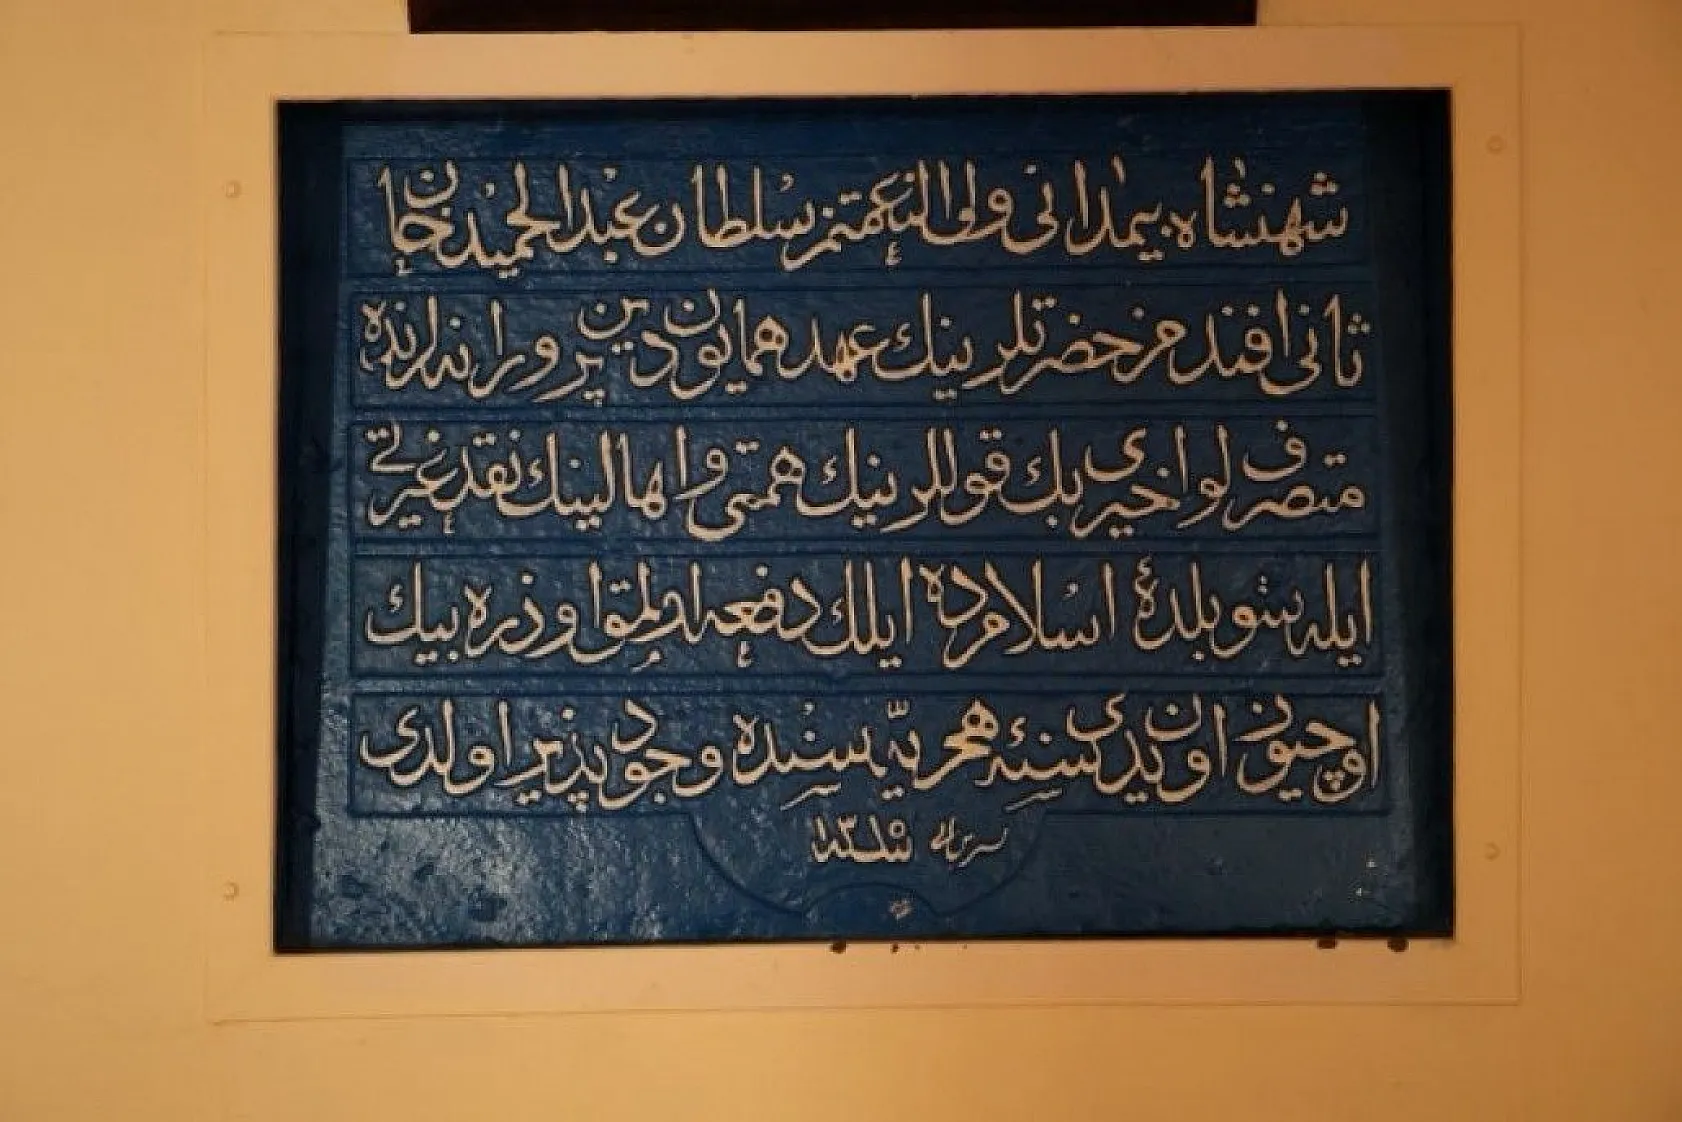 شهنشاه بيمدانی ولی النعمتمز سلطان عبد الحميد خان
ثانی افندمز حضرتلرينك عهد همايون دين پرورانه لرنده
متصرف لوا خيری بك قوللرينك همتی و اهالينك نقد غيرتی
ايله شو بلدهٔ اسلامده ايلك دفعه اولمق اوزره بيك
اوچيوز اون يدی سنهٔ هجريه سنده وجود پذير اولدی